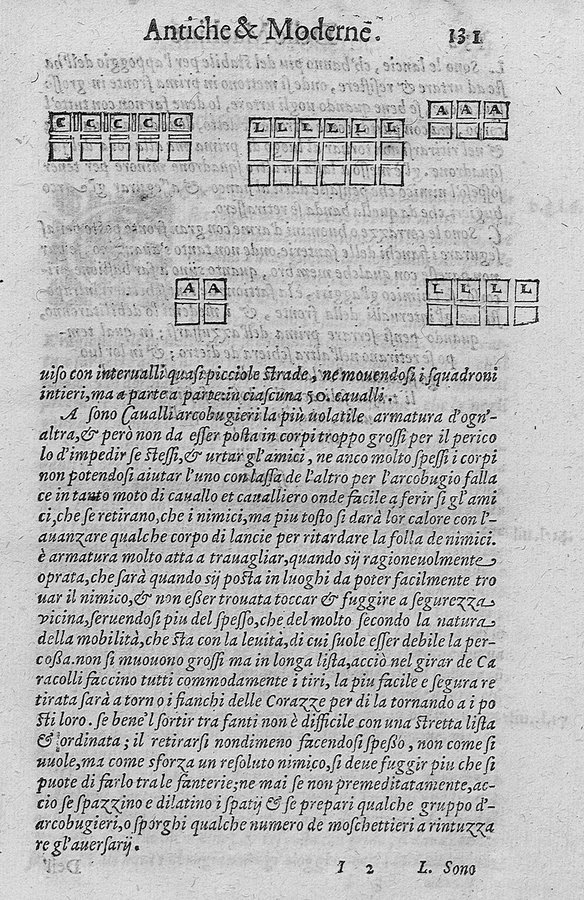 Antiche & Moderne. 131
A A A
C C C C C
L L L L L L
A A
L L L L
uiso con interualli quasi picciole strade, ne mouendosi i squadroni
intieri, ma a parte a parte in ciascuna 50. caualli.
A sono Caualli arcobugieri la più uolatile armatura d'ogn'-
altra, & però non da esser posta in corpi troppo grossi per il perico
lo d'impedir se stessi, & urtar gl'amici, ne anco molto spessi i corpi
non potendosi aiutar l'uno con lassa de l'altro per l'arcobugio falla
ce in tanto moto di cauallo et caualliero onde facile a ferir si gl'ami
ci, che se retirano, che i nimici, ma piu tosto si darà lor calore con l'-
auanzare qualche corpo di lancie per ritardare la folla de nimici.
è armatura molto atta a trauagliar, quando sij ragioneuolmente
oprata, che sarà quando sij posta in luoghi da poter facilmente tro
uar il nimico, & non eßer trouata toccar & fuggire a segurezza
vicina, seruendosi piu del spesso, che del molto secondo la natura
della mobilità, che sta con la leuità, di cui suole esser debile la per-
coßa. non si muouono grossi ma in longa lista, acciò nel girar de Ca
racolli faccino tutti commodamente i tiri, la piu facile e segura re
tirata sarà a torno i fianchi delle Corazze per di la tornando a i po
sti loro. se bene'l sortir tra fanti non è difficile con una stretta lista
& ordinata; il retirarsi nondimeno facendosi speßo, non come si
uuole, ma come sforza un resoluto nimico, si deue fuggir piu che si
puote di farlo tra le fanterie; ne mai se non premeditatamente, ac-
cio se spazzino e dilatino i spatij & se prepari qualche gruppo d'-
arcobugieri, o sporghi qualche numero de moschettieri a rintuzza
re gl'auersarij.
I 2 L. Sono